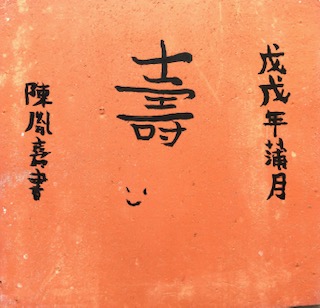 戊戌年蒲月
壽
陳胤喜書